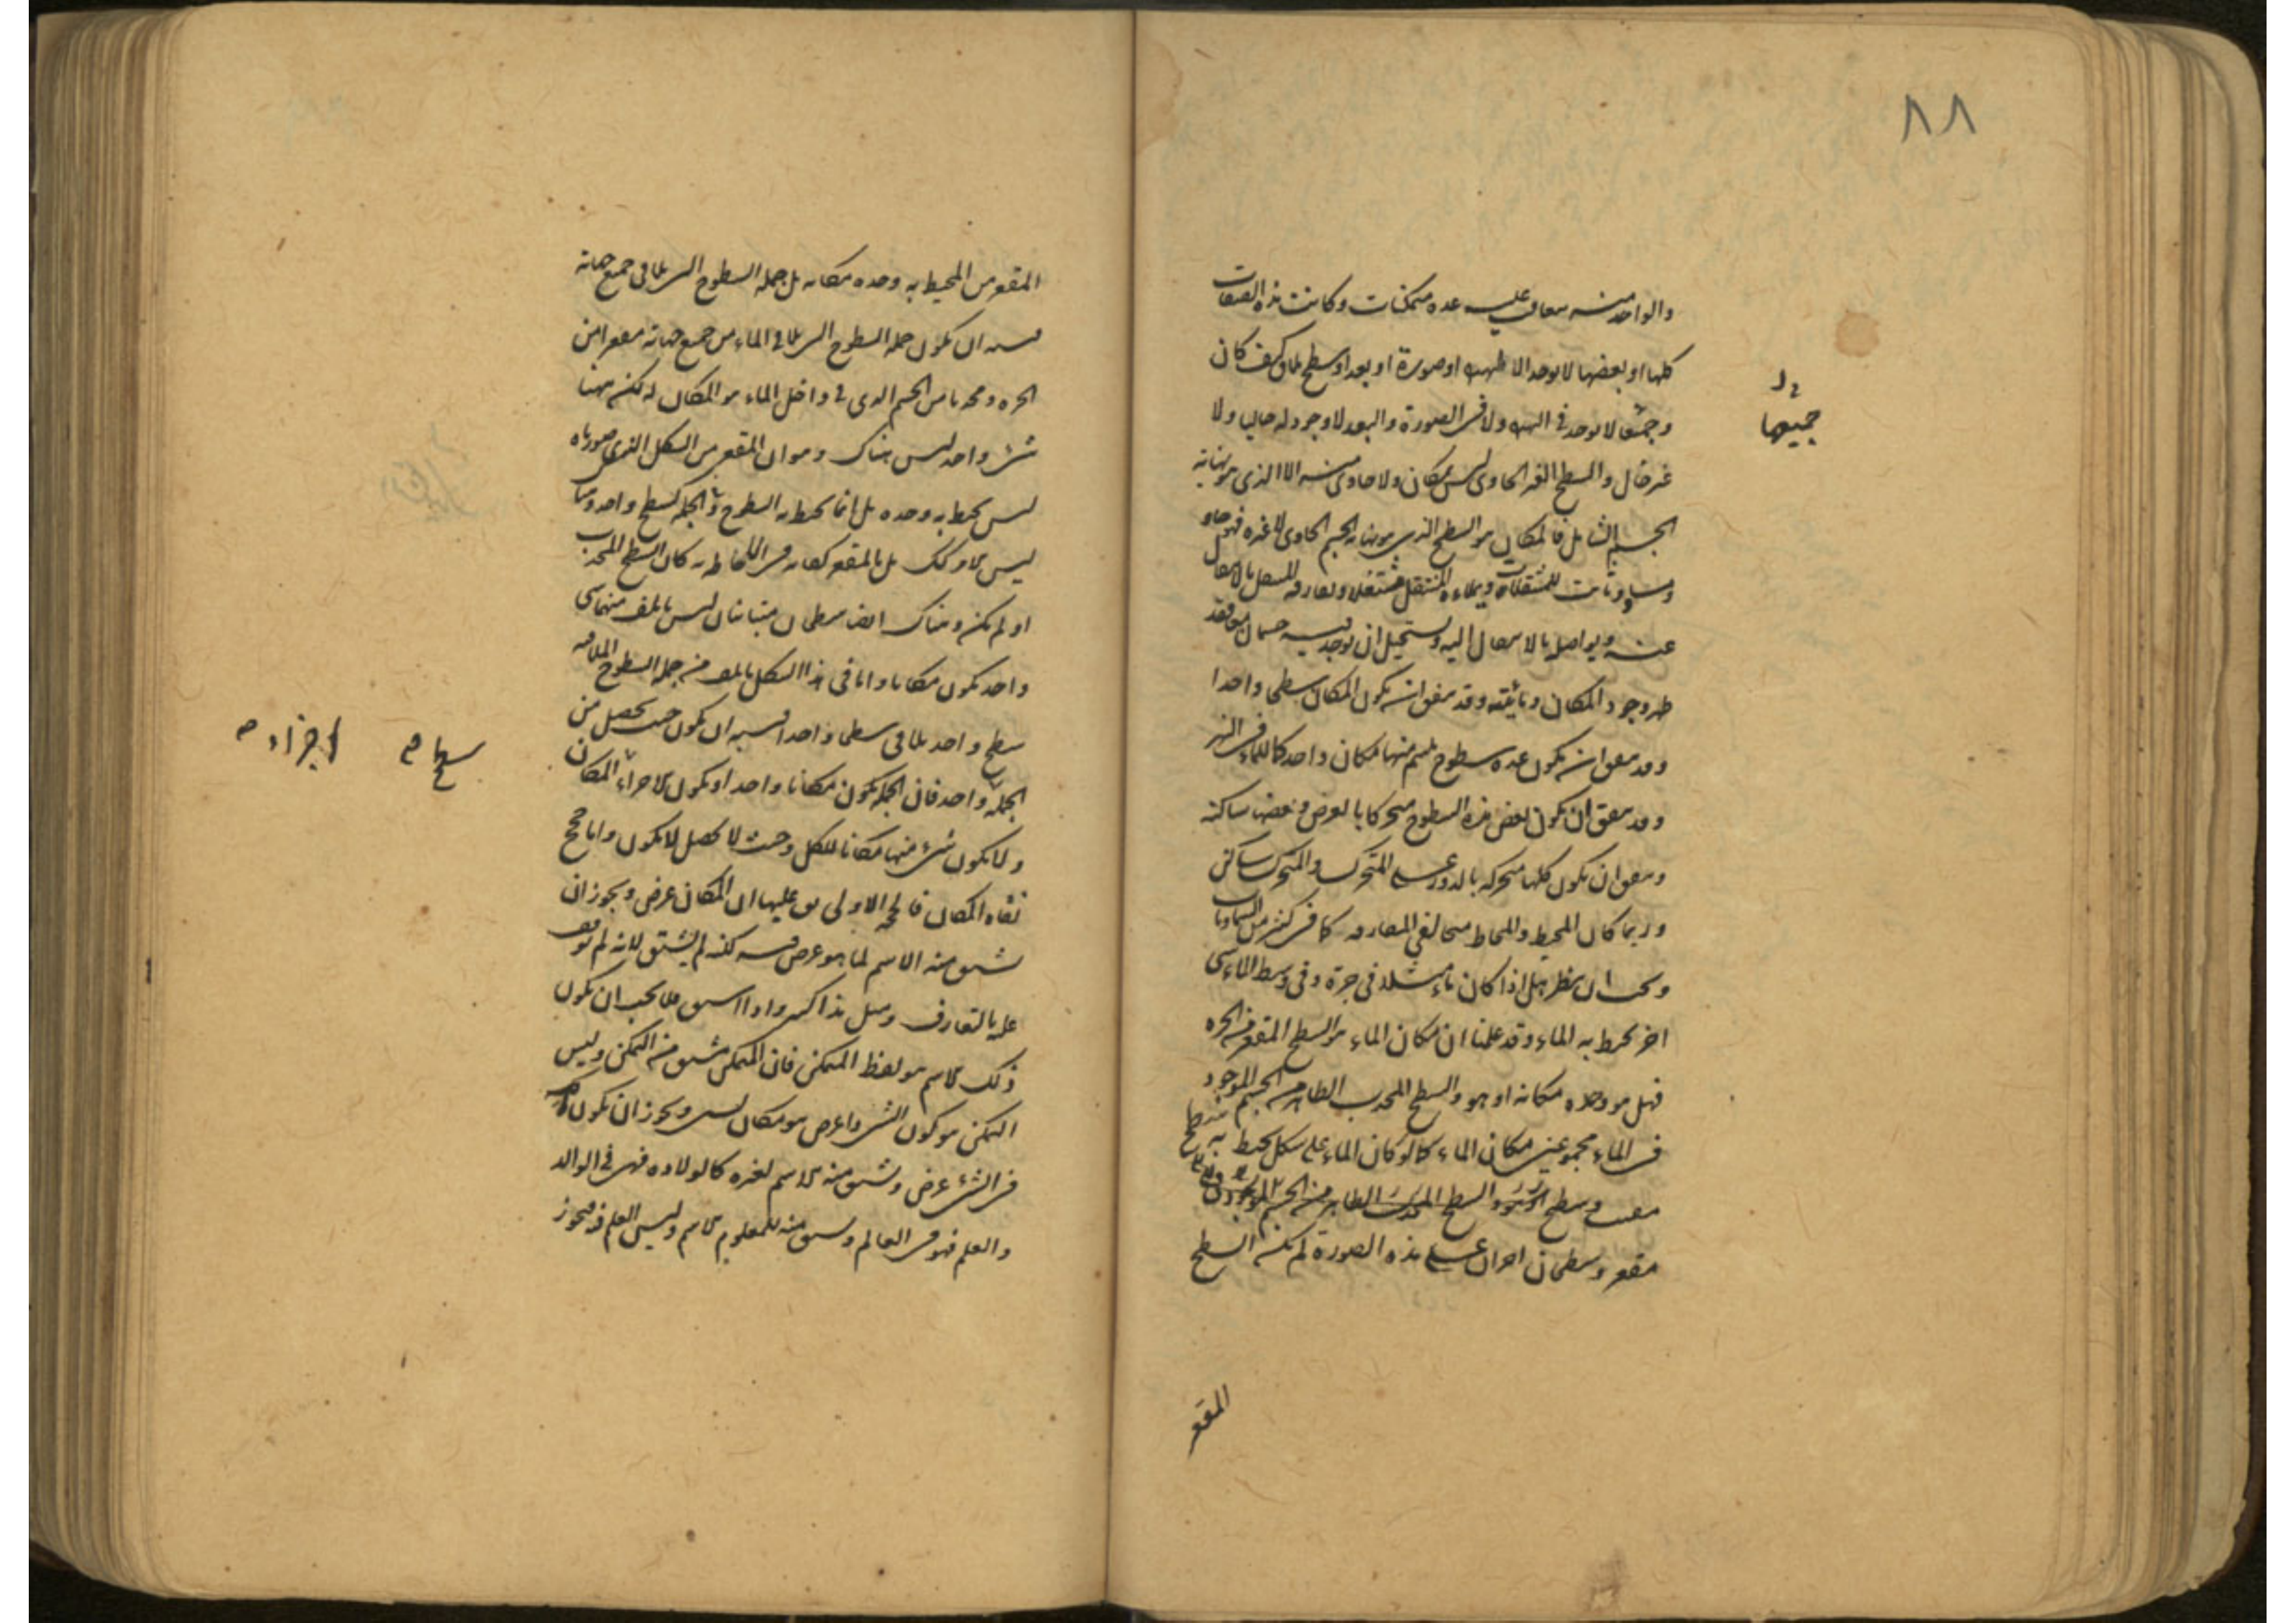 ٨٨
والواحد منه يتعاقب عليه عدة متمكنات وكانت هذه الصفات
كلها او بعضها لا توجد الا لهيولى او صورة او بعد او سطح ملاق كيف كان
وجميعها لا توجد فى الهيولى ولا فى الصورة والبعد لا وجود له خاليا ولا
جميعها
غير خال والسطح الغير الحاوى ليس بمكان ولا حاوى منه الا الذى هو نهاية
الجسم الشامل فالمكان هو السطح الذى هو نهاية الجسم الحاوى لا غيره فهو حاو
ومساو وثابت للمنتقلات ويملاه المنتقل شغلا ويفارقه المنتقل بالانتقال
عنه ويواصله بالانتقال اليه ويستحيل ان يوجد فيه جسمان معا فقد
ظهر وجود المكان وماهيته وقد يتفق ان يكون المكان سطحا واحدا
وقد يتفق ان يكون عدة سطوح يلتئم منها مكان واحد كما للماء فى النهر
وقد يتفق ان يكون بعض هذه السطوح متحركا بالعرض وبعضها ساكنة
ويتفق ان يكون كلها متحركة بالدور على المتحرك والمتحرك ساكن
وربما كان المحيط والمحاط متخالفى المفارقة كما فى كثير من السماويات
ويجب ان ينظر هل اذا كان ماء مثلا فى جرة وفى وسط الماء شى
اخر يحيط به الماء وقد علمنا ان مكان الماء هو السطح المقعر من الجرة
فهل هو وحده مكانه او هو والسطح المحدب الظاهر من الجسم الموجود
فى الماء مجموعين مكان الماء كما لو كان الماء على شكل يحيط به سطح
محدب وسطح مقعر والسطح المحدب الظاهر من الجسم الموجود
مقعر وسطحان اخران على هذه الصورة لم يكن السطح
المقعر
المقعر من المحيط به وحده مكانه بل جملة السطوح التى تلاقى جميع جهاته
فيشبه ان يكون جملة السطوح التى تلاقى الماء من جميع جهاته مقعرا من
الجرة ومحدبا من الجسم الذى فى داخل الماء هو المكان له لكن ههنا
شئ واحد ليس هناك وهو ان المقعر من الشكل الذى صورناه
ليس يحيط به وحده بل انما يحيط به السطوح والجملة كسطح واحد وههنا
ليس الامر كذلك بل بالمقعر كفاية فى الاحاطة به كان السطح المحدب
او لم يكن وهناك ايضا سطحان متباينان ليس يأتلف منهما شى
واحد يكون مكانا واما فى هذا الشكل يأتلف من جملة السطوح الملاقية
سطح واحد يلاقى سطحا واحدا فيشبه ان يكون حيث يحصل من
الجملة واحد فان الجملة يكون مكانا واحدا ويكون الاجزاء اجزاء المكان
سطح ما صح
اجزاء صح
ولا يكون شئ منها مكانا للكل وحيث لا يحصل لا يكون واما حجج
نفاة المكان فالحجة الاولى يق عليها ان المكان عرض ويجوز ان
يشتق منه الاسم لما هو عرض فيه لكنه لم يشتق لانه لم يوقف
عليه بالتعارف ومثل هذا كثير واذا اشتق فلا يجب ان يكون
ذلك الاسم هو لفظ المتمكن فان المتمكن مشتق من التمكن وليس
التمكن هو كون الشئ ذا عرض هو مكان لشئ ويجوز ان يكون
فى الشئ عرض ويشتق منه الاسم لغيره كالولادة فهى فى الوالد
والعلم فهو فى العالم ويشتق منه للمعلوم الاسم وليس العلم فيه فيجوز